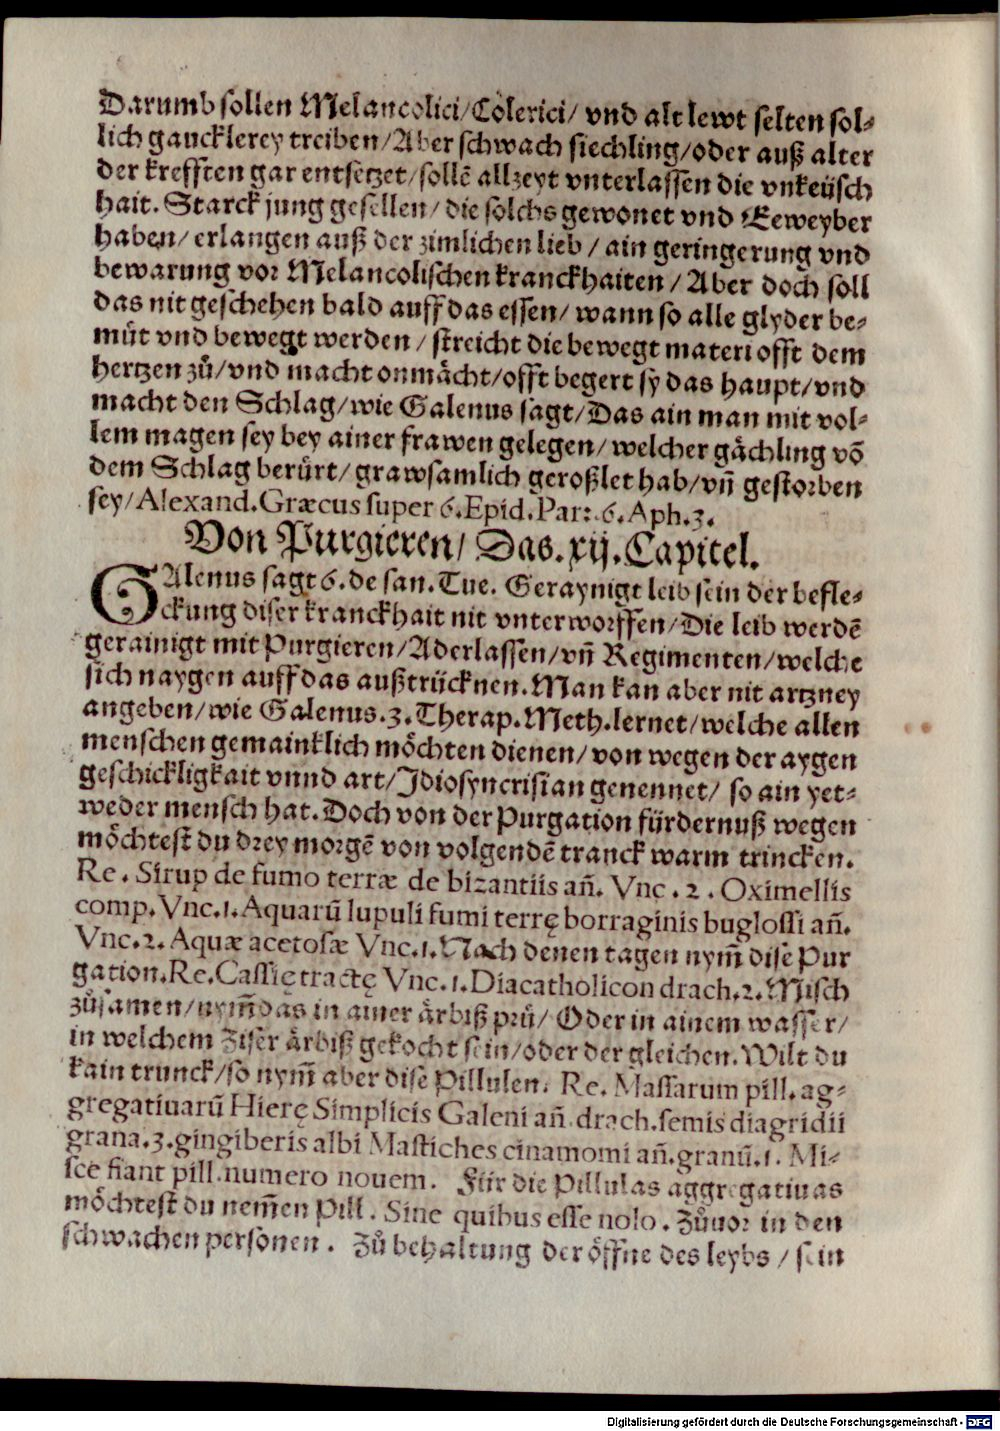 Darumb sollen Melancolici/Colerici/ vnd alt lewt selten sol⸗
lich gaucklerey treiben/Aber schwach siechling/oder auß alter
der krefften gar entsetzet/sollẽ allzeyt vnterlassen die vnkeüsch
hait. Starck jung gesellen/ die solchs gewonet vnd Eeweyber
haben/ erlangen auß der zimlichen lieb / ain geringerung vnd
bewarung vor Melancolischen kranckhaiten / Aber doch soll
das nit geschehen bald auff das essen/ wann so alle glyder be⸗
müt vnd bewegt werden / streicht die bewegt materi offt dem
hertzen zů/vnd macht onmächt/offt begert sy das haupt/vnd
macht den Schlag/wie Galenus sagt/Das ain man mit vol⸗
lem magen sey bey ainer frawen gelegen/ welcher gächling võ
dem Schlag berürt/ grawsamlich geroßlet hab/vñ gestorben
sey/Alexand.Græcus super 6.Epid.Par: 6.Aph.3.
Von Purgieren/ Das.xij.Capitel.
GAlenus sagt 6.de san.Tue. Geraynigt leib sein der befle⸗
ckung diser kranckhait nit vnterworffen/Die leib werdẽ
gerainigt mit Purgieren/Aderlassen/vñ Regimenten/welche
sich naygen auff das außtrücknen.Man kan aber nit artzney
angeben/wie Galenus.3.Therap.Meth.lernet/welche allen
menschen gemainklich möchten dienen/von wegen der aygen
geschickligkait vnnd art/Idiosyncrisian genennet/ so ain yet⸗
weder mensch hat.Doch von der Purgation fürdernuß wegen
möchtest du drey morgẽ von volgendẽ tranck warm trincken.
Re. Sirup de fumo terræ de bizantiis añ. Vnc.2. Oximellis
comp.Vnc.1.Aquarũ lupuli fumi terrę borraginis buglossi añ.
Vnc.2. Aquæ acetosæ Vnc.1.Nach denen tagen nym̃ dise Pur
gation.Re.Cassię tractę Vnc.1.Diacatholicon drach.2.Misch
zůsamen/nym̃ das in ainer ärbiß prů/ Oder in ainem wasser/
in welchem Ziser ärbiß gekocht sein/oder der gleichen.Wilt du
kain trunck/so nym̃ aber dise Pillulen. Re. Massarum pill.ag⸗
gregatiuarũ Hierę Simplicis Galeni añ.drach.semis diagridii
grana.3.gingiberis albi Mastiches cinamomi añ.granũ.1. Mi⸗
sce fiant pill.numero nouem. Für die Pillulas aggregatiuas
möchtest du nem̃en Pill. Sine quibus esse nolo. Zůuor in den
schwachen personen. Zů behaltung der öffne des leybs / sein
Digitalisierung gefördert durch die Deutsche Forschungsgemeinschaft - DFG